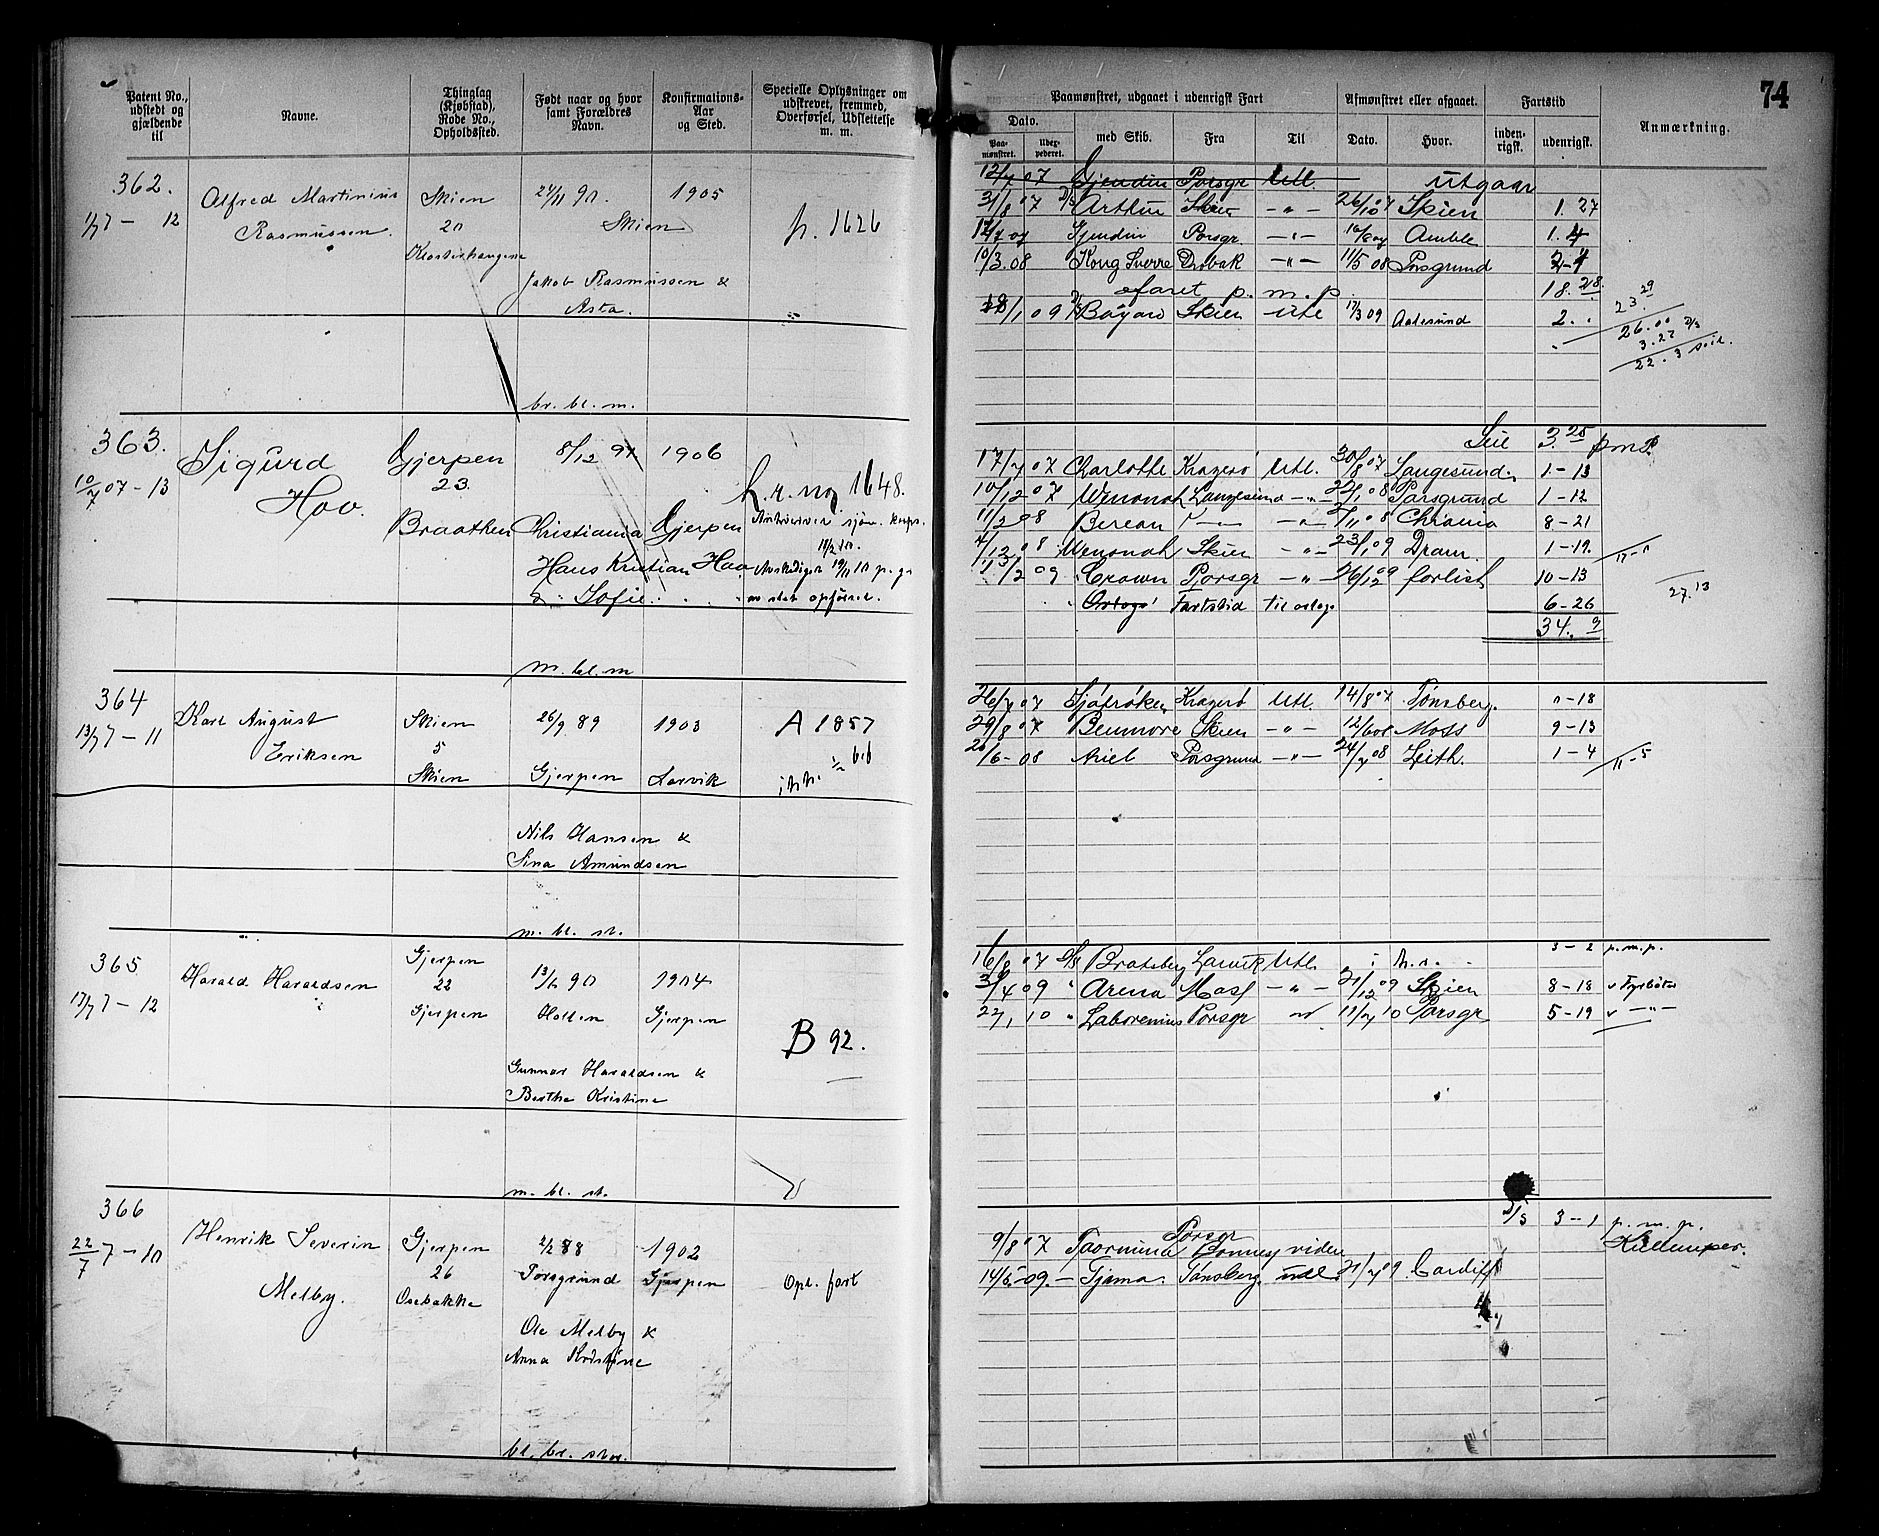 74
Patent No., udstedt og gjældende til
Navne.
Thinglag (Kjøbstad), Rode No., Opholdssted.
Født naar og hvor samt Forældres Navn.
Konfirmations-Aar og Sted.
Specielle Oplysninger om udskrevet, fremmed, Overførsel, Udslettelse m. m.
Paamønstret, udgaaet i udenrigsk Fart
Afmønstret eller afgaaet.
Fartstid
Anmærkning.
Dato.
Paa-mønstret.
Udex-pederet.
med Skib.
Fra
Til
Dato.
Hvor.
inden-rigsk.
udenrigsk.
362.
Alfred Martinius
Rasmussen
Skien
20
Klosterhaugene
Skien
Jakob Rasmussen &
Asta.
1905
br. bl. m.
12/7 07 Gjendin Porsgr Utl. utgaar
31/8 07 D/S Arthur Skien - " - 26/10 07 Skien 1. 27
Gjendin Porsgr. - " - Amble 1. 4
10/3.08 Kong Sverre Drøbak - " - 11/5 08 Porsgrund 2-4
faret p. m. p. 18. 28.
1 09 Bayard Skien Utl 17/3 09 Aalesund 2.
23. 29
26.00
3.27
22. 3 seil.
363.
10/7 07 - 13
Sigurd
Hov.
Gjerpen
23.
Braathen
8/12 91
Christiania
Hans Kristian Hov
& Sofie
1906
Gjerpen
h. r. no 1648.
m. bl. m
Seil 3. 25 pmp.
17/7 07 Charlotte Kragerø Utl. 30/8 07 Langesund. 1-13
10/12 07 Wenonah Langesund - " - Porsgrund 1-12
11/2 08 Berean - " - Chrania 8-21
12 08 Wenonah Skien - " - 23/1 09 Dram. 1-19.
13/2 09 Crown Porsgr - " - 26/12 09 forlist 10-13
27.13
Fartstid til 6-26
34. 9
364
13/7 7 - 11
Karl August
Eriksen
Skien
5
Skien
26/9 89
Gjerpen
Nils Hansen &
Sina Amundsen
1903
Larvik
A 1857
m. bl. st.
26/7 07 Sjøfrøken Kragerø Utl. 14/8 07 Tønsberg. 0-18
29/8 07 Benmore Skien - " - Moss 9-13
6-08 Ariel Porsgrund - " - 24/7 08 Leith. 1-4
11-5
365
17/7 7 - 12
Harald Haraldsen
Gjerpen
22
Gjerpen
90
Holden
Gunnar Haraldsen &
Berthe Kristine
1904
Gjerpen
B 92.
m. bl. st.
3-2 p.m.p.
16/8 07 D/S Bratsberg Larvik Utl.
4 09 " Arena Moss - " - 21/12 09 Skien 8-18 v Fyrbøter
22/1 10 " Laboremus Porsgr 11/7 10 Porsgr 5-19 v - " -
366
22/7 7 - 10
Henrik Severin
Melby.
Gjerpen
26
Osebakke
2/2 88
Porsgrund
Ole Melby &
Anna Kristine
1902
Gjerpen
Opl. fart
bl. br. stor.
D/S 3-1 p. m. p.
9/8 07 Taormina Porsgr
14/5-09. - Tjømø. Tønsberg. udl. 21/7 09 Cardiff